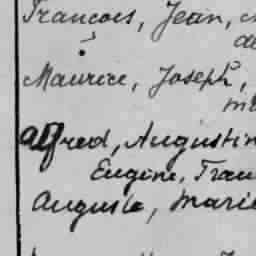 Francois, Jean,
Maurice, Joseph,
Alfred, Augustin
Eugène, Fran
Auguste, Marie